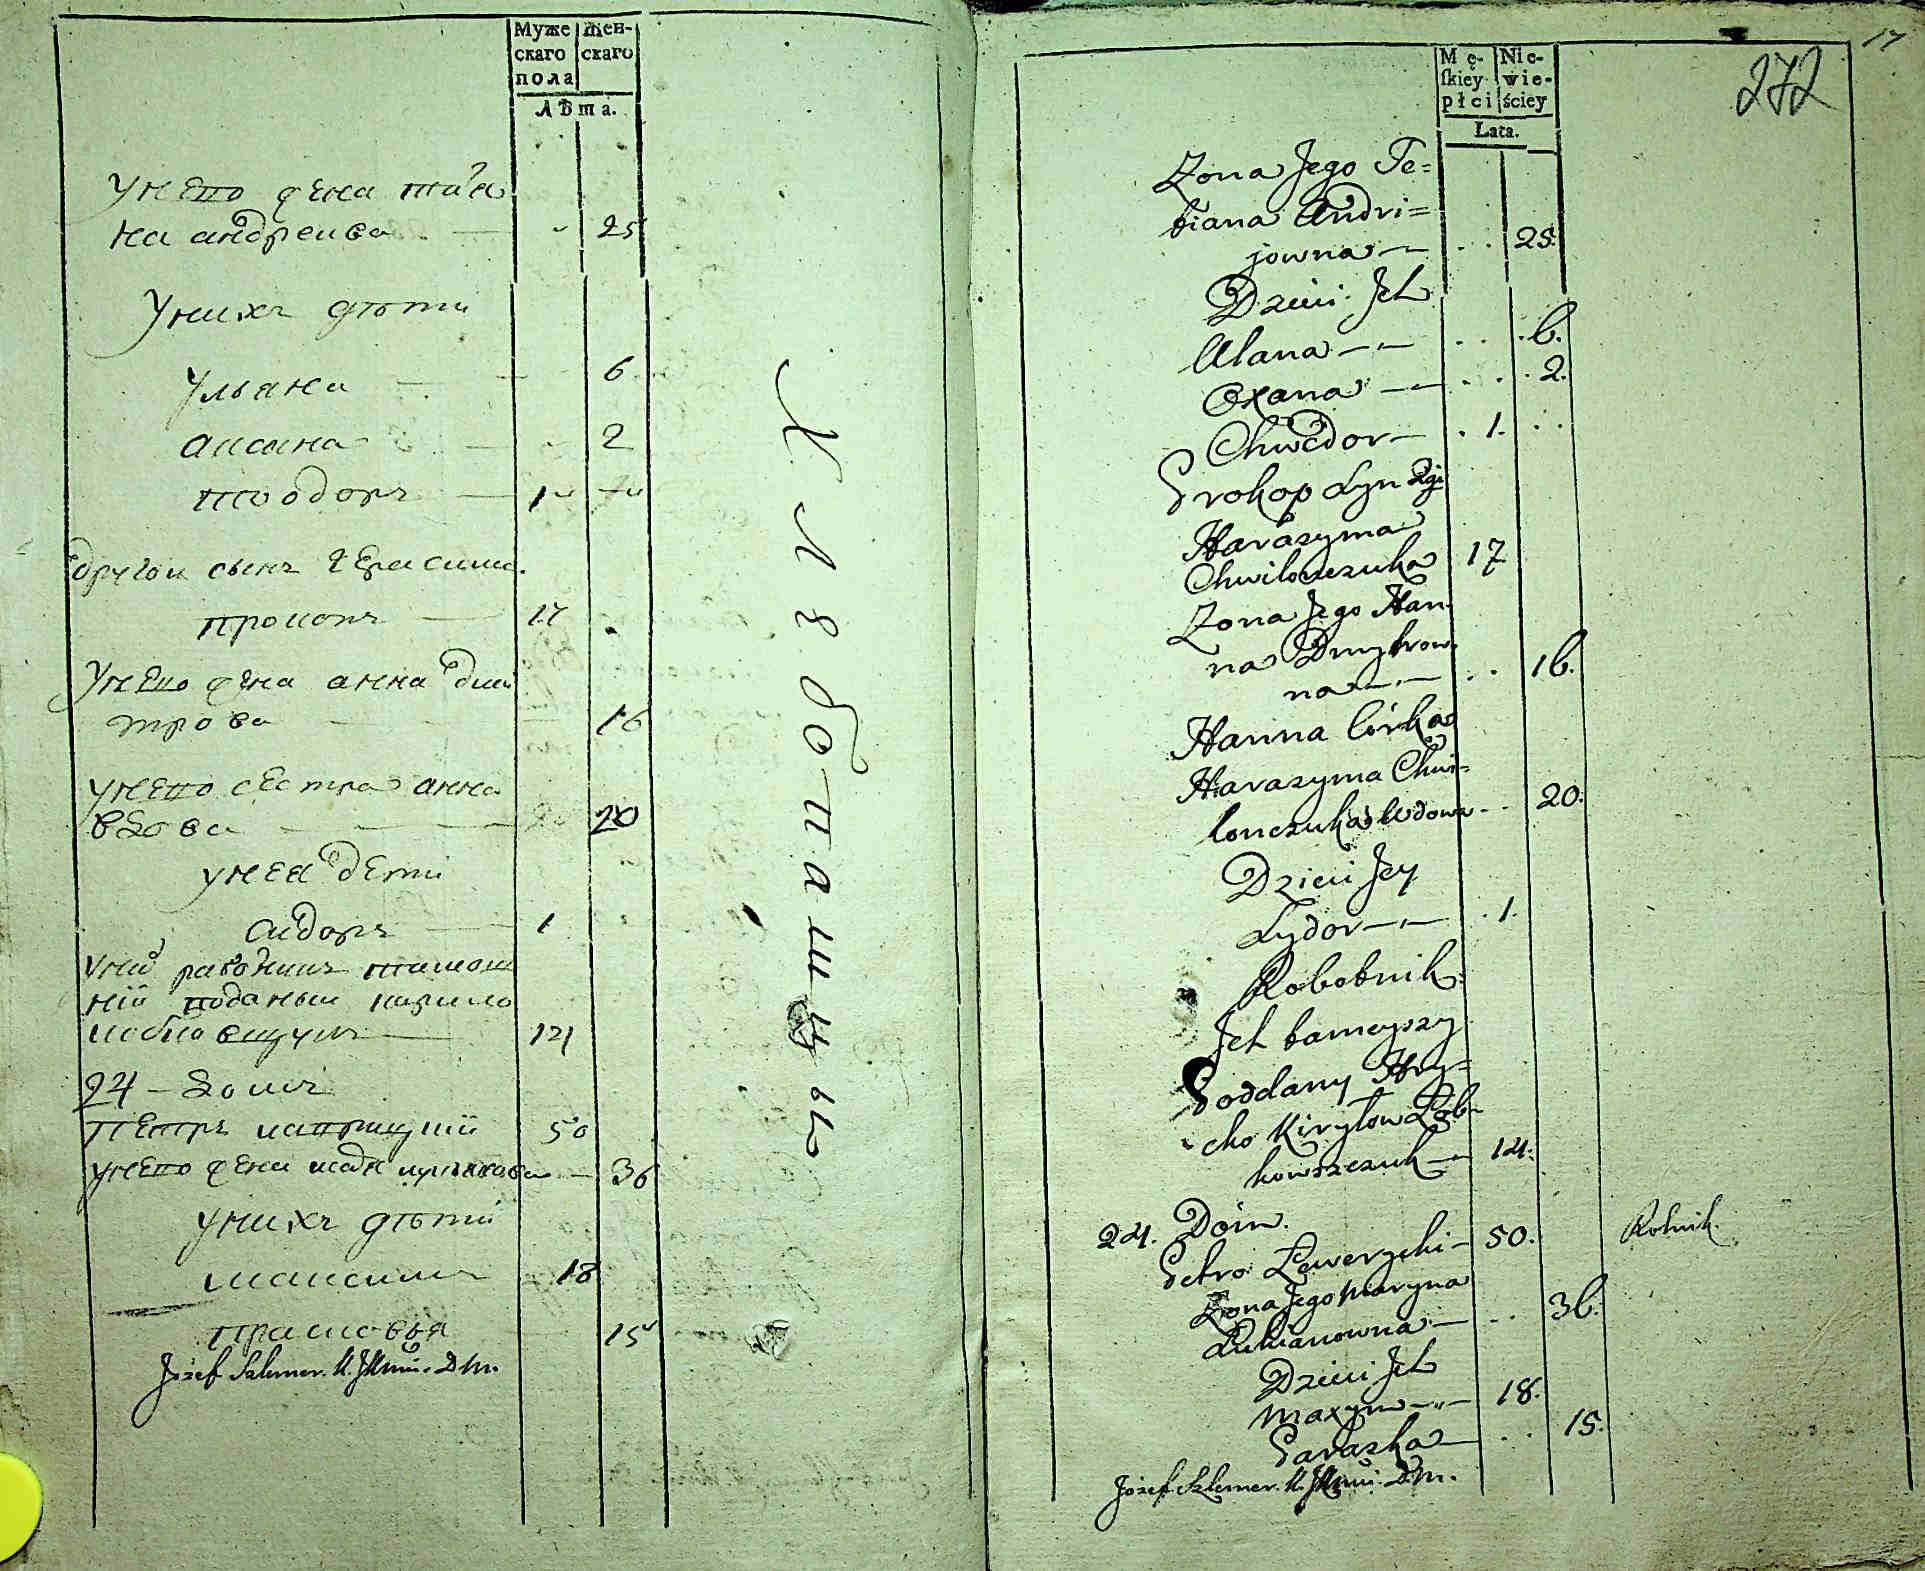 Муже
скаго
пола
Жен-
скаго
Лѣта.
у него жена татя
на андреива 25
у нихъ дѣти
ульяна 6
аксина 2
тводоръ 1
другои сынъ герасима
прокопъ 17
у него жена анна дми
трова 16
у него сестра анна
вдова 20
у неи дети
сидоръ 1
у них работникъ тамош
ніи поданыи кирило
14
24 - домъ
петръ 50
у него жена 36
у нихъ дѣти
максимъ 18
прасковья 15
Jozef Szlemer. K. D. M.
Хлѣбопашцы
17
272
Mę-
skiey
płci
Nie-
wie-
ściey
Lata.
Zona Jego Te=
tiana Andri=
jowna 25.
Dzieci Jch
Ulana 6.
Oxana 2.
Chwedor 1.
Prokop Syn 2gi
Harasyma
Chwilonczuka 17
Zona Jego Han
na Dmytrow
na 16.
Hanna Córka
Harasyma Chwi=
lonczuka Wdowa 20.
Dzieci Jey
Sydor 1.
Robotnik
Jch tameyszy
Poddany Hry=
cko Kiryłow Lob-
kowszczuk 14.
24. Dom.
Petro Lewerzcki 50. Rolnik.
Zona Jego Maryna
Lukianowna 36.
Dzieci Jch
Maxym 18.
Paraska 15.
Jozef Szlemer. K. D. M.